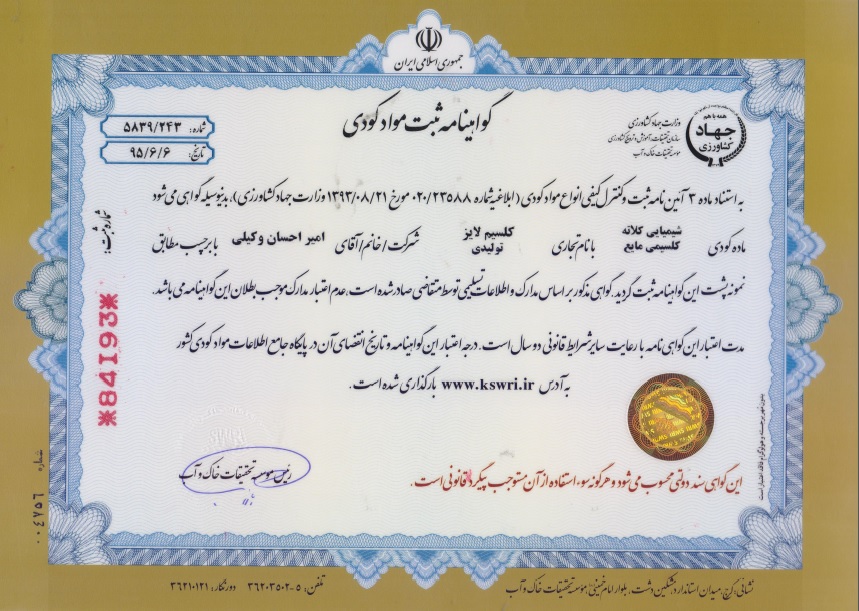 جمهوری اسلامی ایران
گواهینامه ثبت مواد کودی
شماره: ۵۸۳۹/۲۴۳
تاریخ: ۹۵/۶/۶
همه با هم
جهاد
کشاورزی
وزارت جهاد کشاورزی
سازمان تحقیقات، آموزش و ترویج کشاورزی
موسسه تحقیقات خاک و آب
به استناد ماده ۳ آئین نامه ثبت و کنترل کیفی انواع مواد کودی (ابلاغیه شماره ۰۲۰/۲۳۵۸۸ مورخ ۱۳۹۳/۰۸/۲۱ وزارت جهاد کشاورزی)، بدینوسیله گواهی می شود
ماده کودی شیمیایی کلاته کلسیمی مایع با نام تجاری کلسیم لایز تولیدی شرکت/خانم/آقای امیر احسان وکیلی با برچسب مطابق
نمونه پشت این گواهینامه ثبت گردید. گواهی مذکور بر اساس مدارک و اطلاعات تسلیمی توسط متقاضی صادر شده است، عدم اعتبار مدارک موجب بطلان این گواهینامه می باشد.
مدت اعتبار این گواهی نامه با رعایت سایر شرایط قانونی دو سال است. درجه اعتبار این گواهینامه و تاریخ انقضای آن در پایگاه جامع اطلاعات مواد کودی کشور
به آدرس www.kswri.ir بارگذاری شده است.
شماره ثبت:
*84193*
رئیس موسسه تحقیقات خاک و آب
این گواهی سند دولتی محسوب می شود و هرگونه سوء استفاده از آن مستوجب پیگرد قانونی است.
بدون مهر برجسته و هولوگرام فاقد اعتبار است
شماره ۰۰۴۷۵۶
نشانی: کرج، میدان استاندارد، مشکین دشت، بلوار امام خمینی، موسسه تحقیقات خاک و آب
تلفن: ۵-۳۶۲۰۳۵۰۲ دورنگار: ۳۶۲۱۰۱۲۱